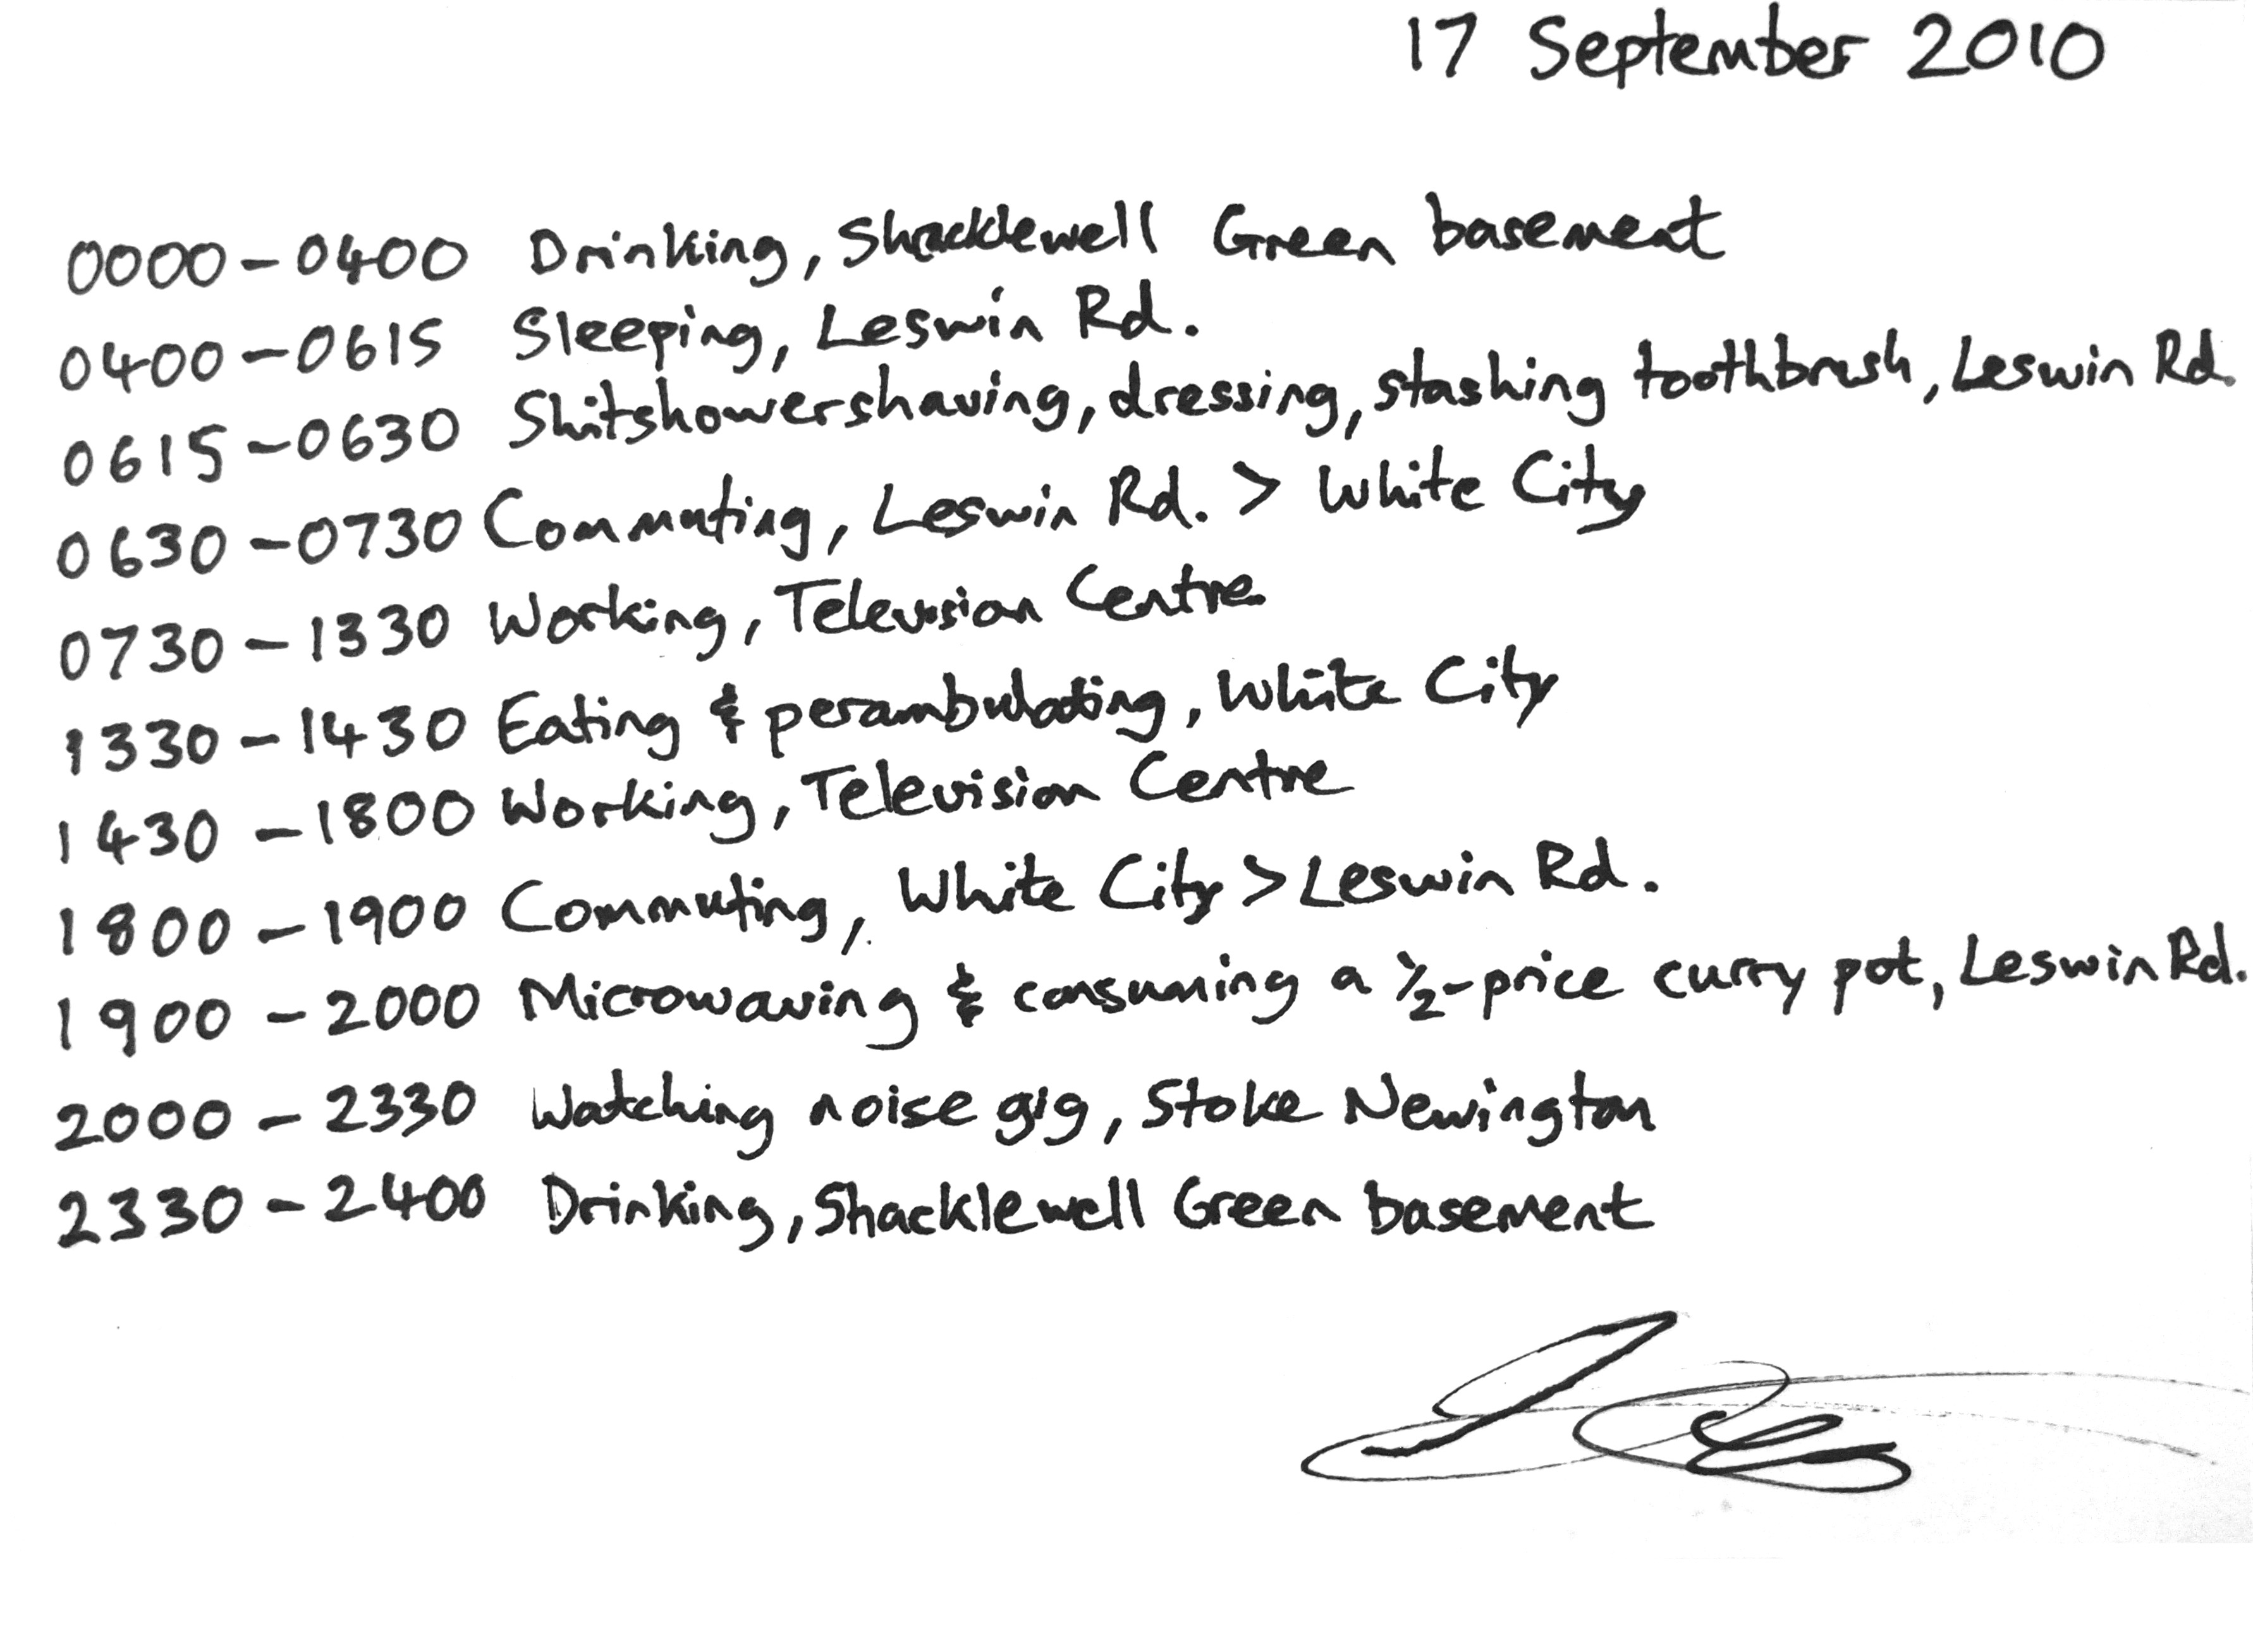 17 September 2010
0000-0400 Drinking, Shacklewell Green basement
0400-0615 Sleeping, Leswin Rd.
0615-0630 Shitshowershaving, dressing, stashing toothbrush, Leswin Rd.
0630-0730 Commuting, Leswin Rd. > White City
0730-1330 Working, Television Centre
1330-1430 Eating & perambulating, White City
1430-1800 Working, Television Centre
1800-1900 Commuting, White City > Leswin Rd.
1900-2000 Microwaving & consuming a ½-price curry pot, Leswin Rd.
2000-2330 Watching noise gig, Stoke Newington
2330-2400 Drinking, Shacklewell Green basement